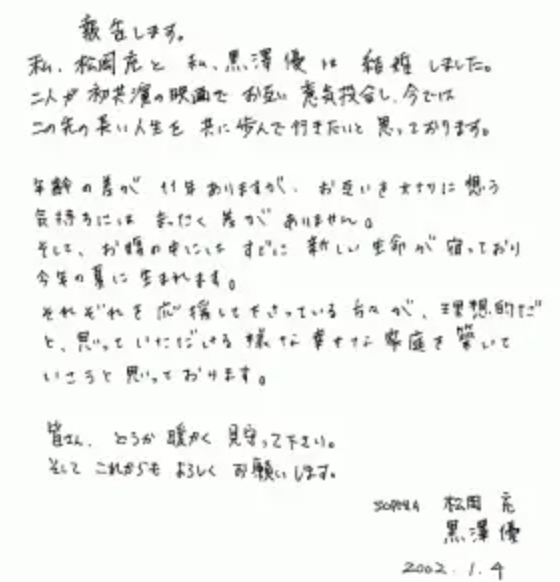 報告します。
私、松岡充と 私、黒澤優は 結婚しました。
二人が初共演の映画で お互い 意気投合し、今では
この先の長い人生を 共に歩んで行きたいと 思っております。
年齢の差が 11年ありますが、お互いを大切に想う
気持ちには まったく差がありません。
そして、お腹の中には すでに 新しい生命が宿っており
今年の夏に生まれます。
それぞれを応援して下さっている方々が、理想的だ
と、思っていただける様な幸せな家庭を築いて
いこうと思っております。
皆さん、どうか暖かく見守って下さい。
そして これからも よろしくお願いします。
SOPHIA 松岡 充
黒澤 優
2002.1.4